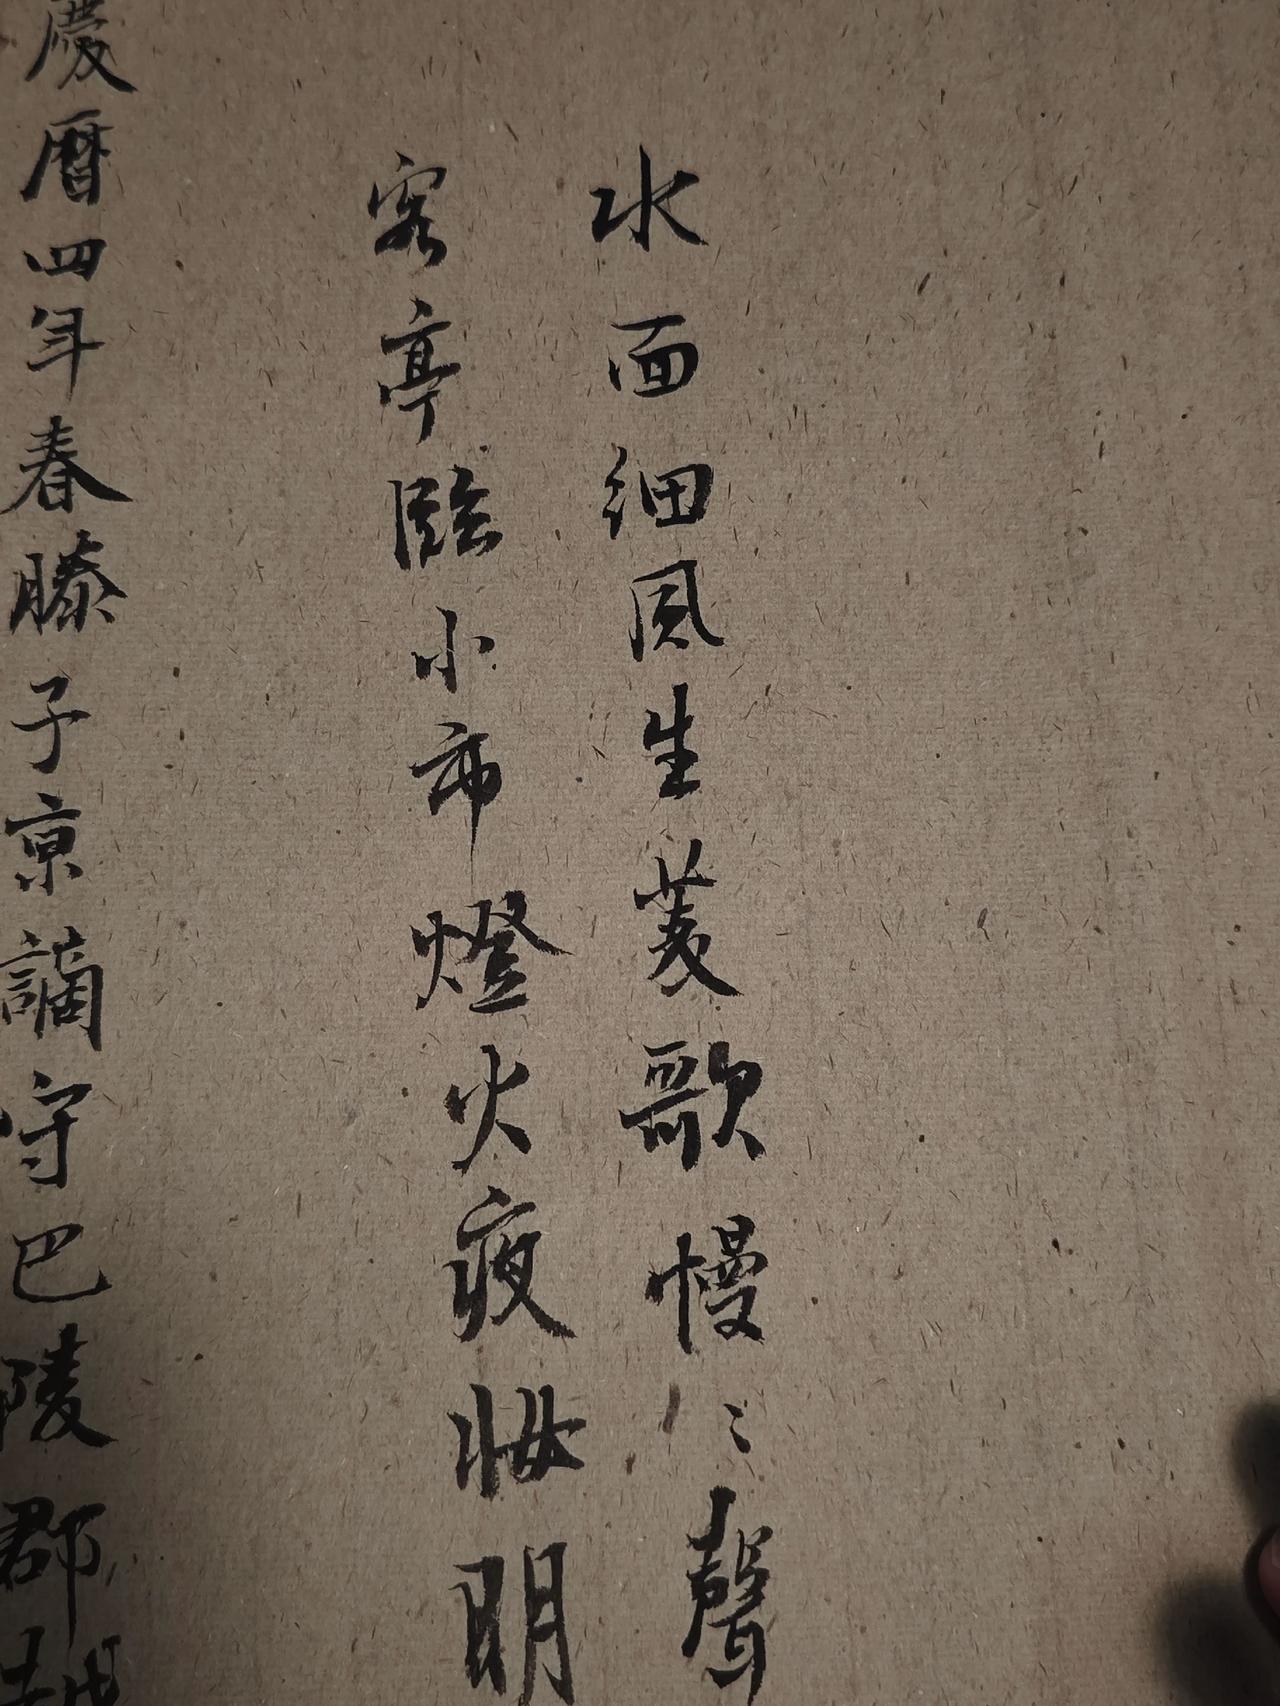 水面細風生菱歌慢〻聲
客亭臨小市燈火夜妝明
慶曆四年春滕子京謫守巴陵郡越